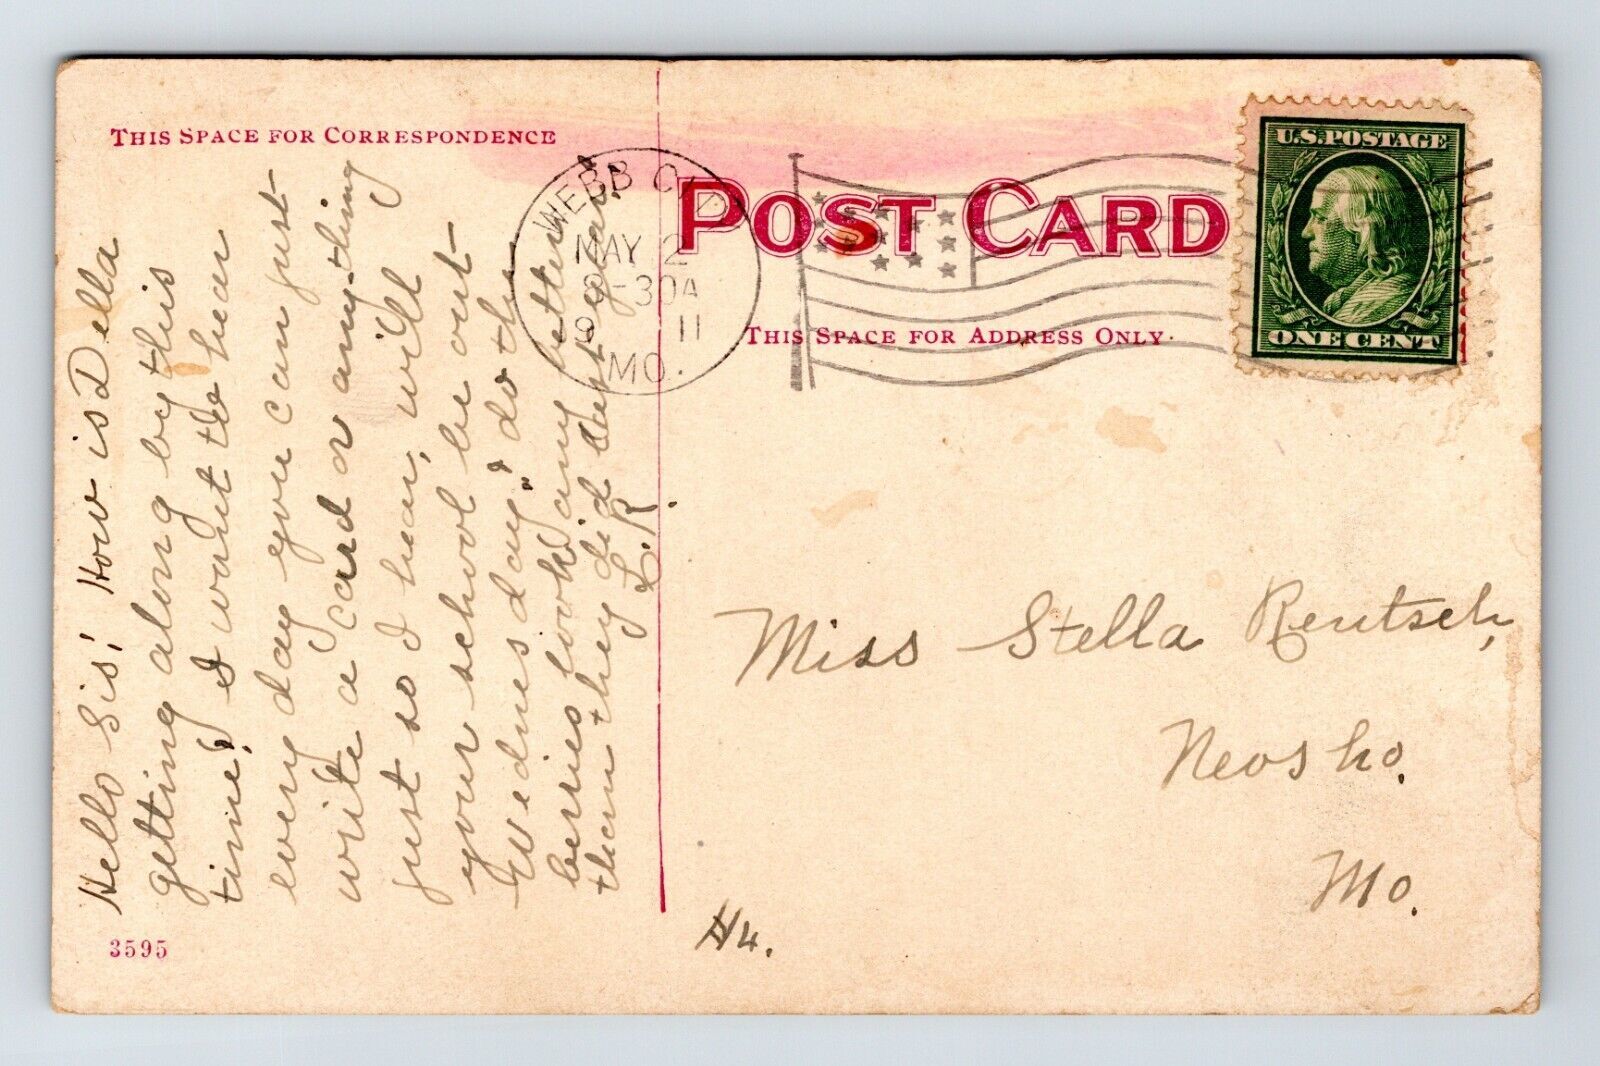 THIS SPACE FOR CORRESPONDENCE
POST CARD
THIS SPACE FOR ADDRESS ONLY.
WEBB CITY
MAY 2
8-30A
19 11
MO.
U.S. POSTAGE
ONE CENT
Hello Sis! How is Della
getting along by this
time? I want to hear
every day you can just
write a card or anything
just so I hear, will
your school be out
Wednesday? do the
berries look any better
than they did last year
L.R.
Miss Stella Rentsch,
Neosho.
Mo.
#4.
3595